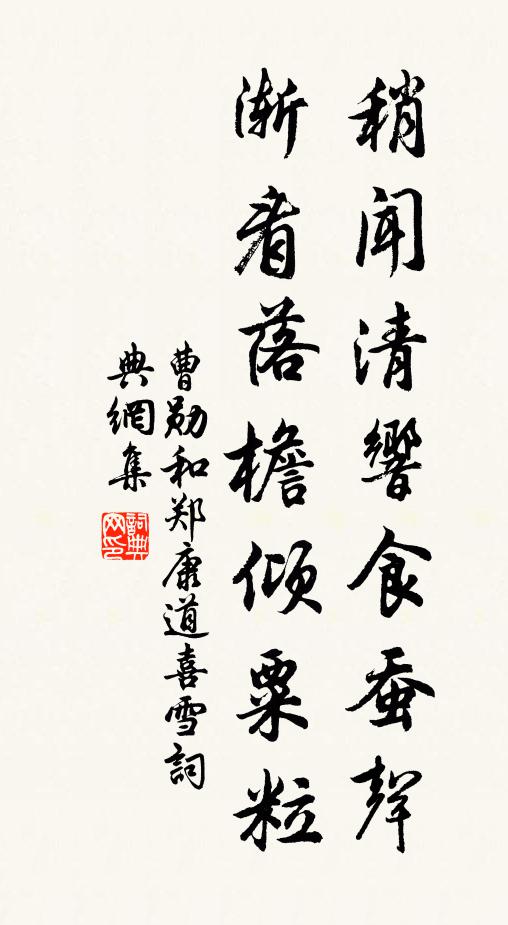 稍闻清響食蚕聲
渐看落檐倾粟粒
曹勋和郑康道喜雪詞
典網集
詞典
网印